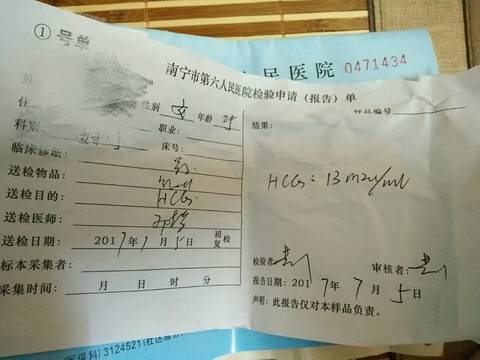 ① 号单
民医院 0471434
南宁市第六人民医院检验申请（报告）单
样品编号
性别 女 年龄 25
科别 职业：
床号：
临床诊断：
送检物品：
送检目的： HCG
送检医师：
送检日期： 2017年7月5日 初检 复检
标本采集者：
采集时间： 月 日 时 分
结果：
HCG: 13 mIu/ml
检验者 审核者：
报告日期：2017年7月5日
声明：此报告仅对本样品负责。
医保科）3124521（社区服务